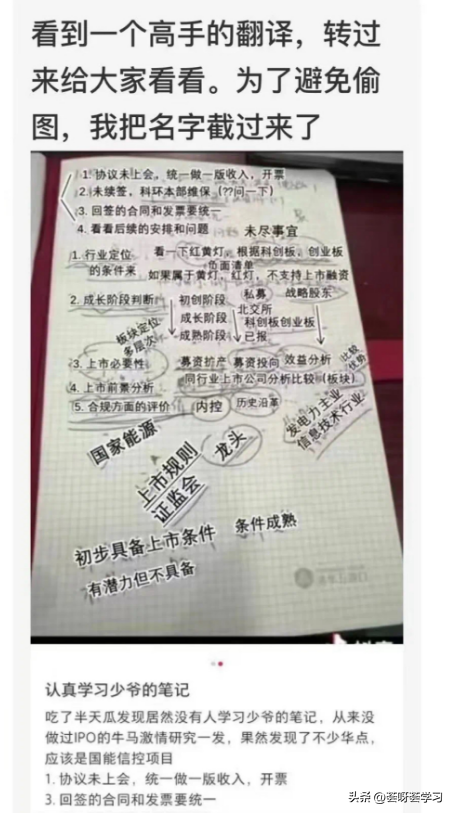 看到一个高手的翻译，转过
来给大家看看。为了避免偷
图，我把名字截过来了
1. 协议未上会，统一做一版收入，开票
2. 未续签，科环本部维保（??问一下）
3. 回签的合同和发票要统一
4. 看看后续的安排和问题
未尽事宜
1. 行业定位 看一下红黄灯，根据科创板，创业板
的条件来 负面清单
如果属于黄灯，红灯，不支持上市融资
2. 成长阶段判断 初创阶段 私募 战略股东
成长阶段 北交所
科创板创业板
成熟阶段 已报
板块定位
多层次
3. 上市必要性 募资扩产 募资投向 效益分析 比较
优势
4. 上市前景分析 同行业上市公司分析比较（板块）
5. 合规方面的评价 内控 历史沿革
发电力主业
信息技术行业
国家能源
上市规则
证监会
龙头
初步具备上市条件 条件成熟
有潜力但不具备
认真学习少爷的笔记
吃了半天瓜发现居然没有人学习少爷的笔记，从来没
做过IPO的牛马激情研究一发，果然发现了不少华点，
应该是国能信控项目
1. 协议未上会，统一做一版收入，开票
3. 回签的合同和发票要统一
头条 @荟呀荟学习